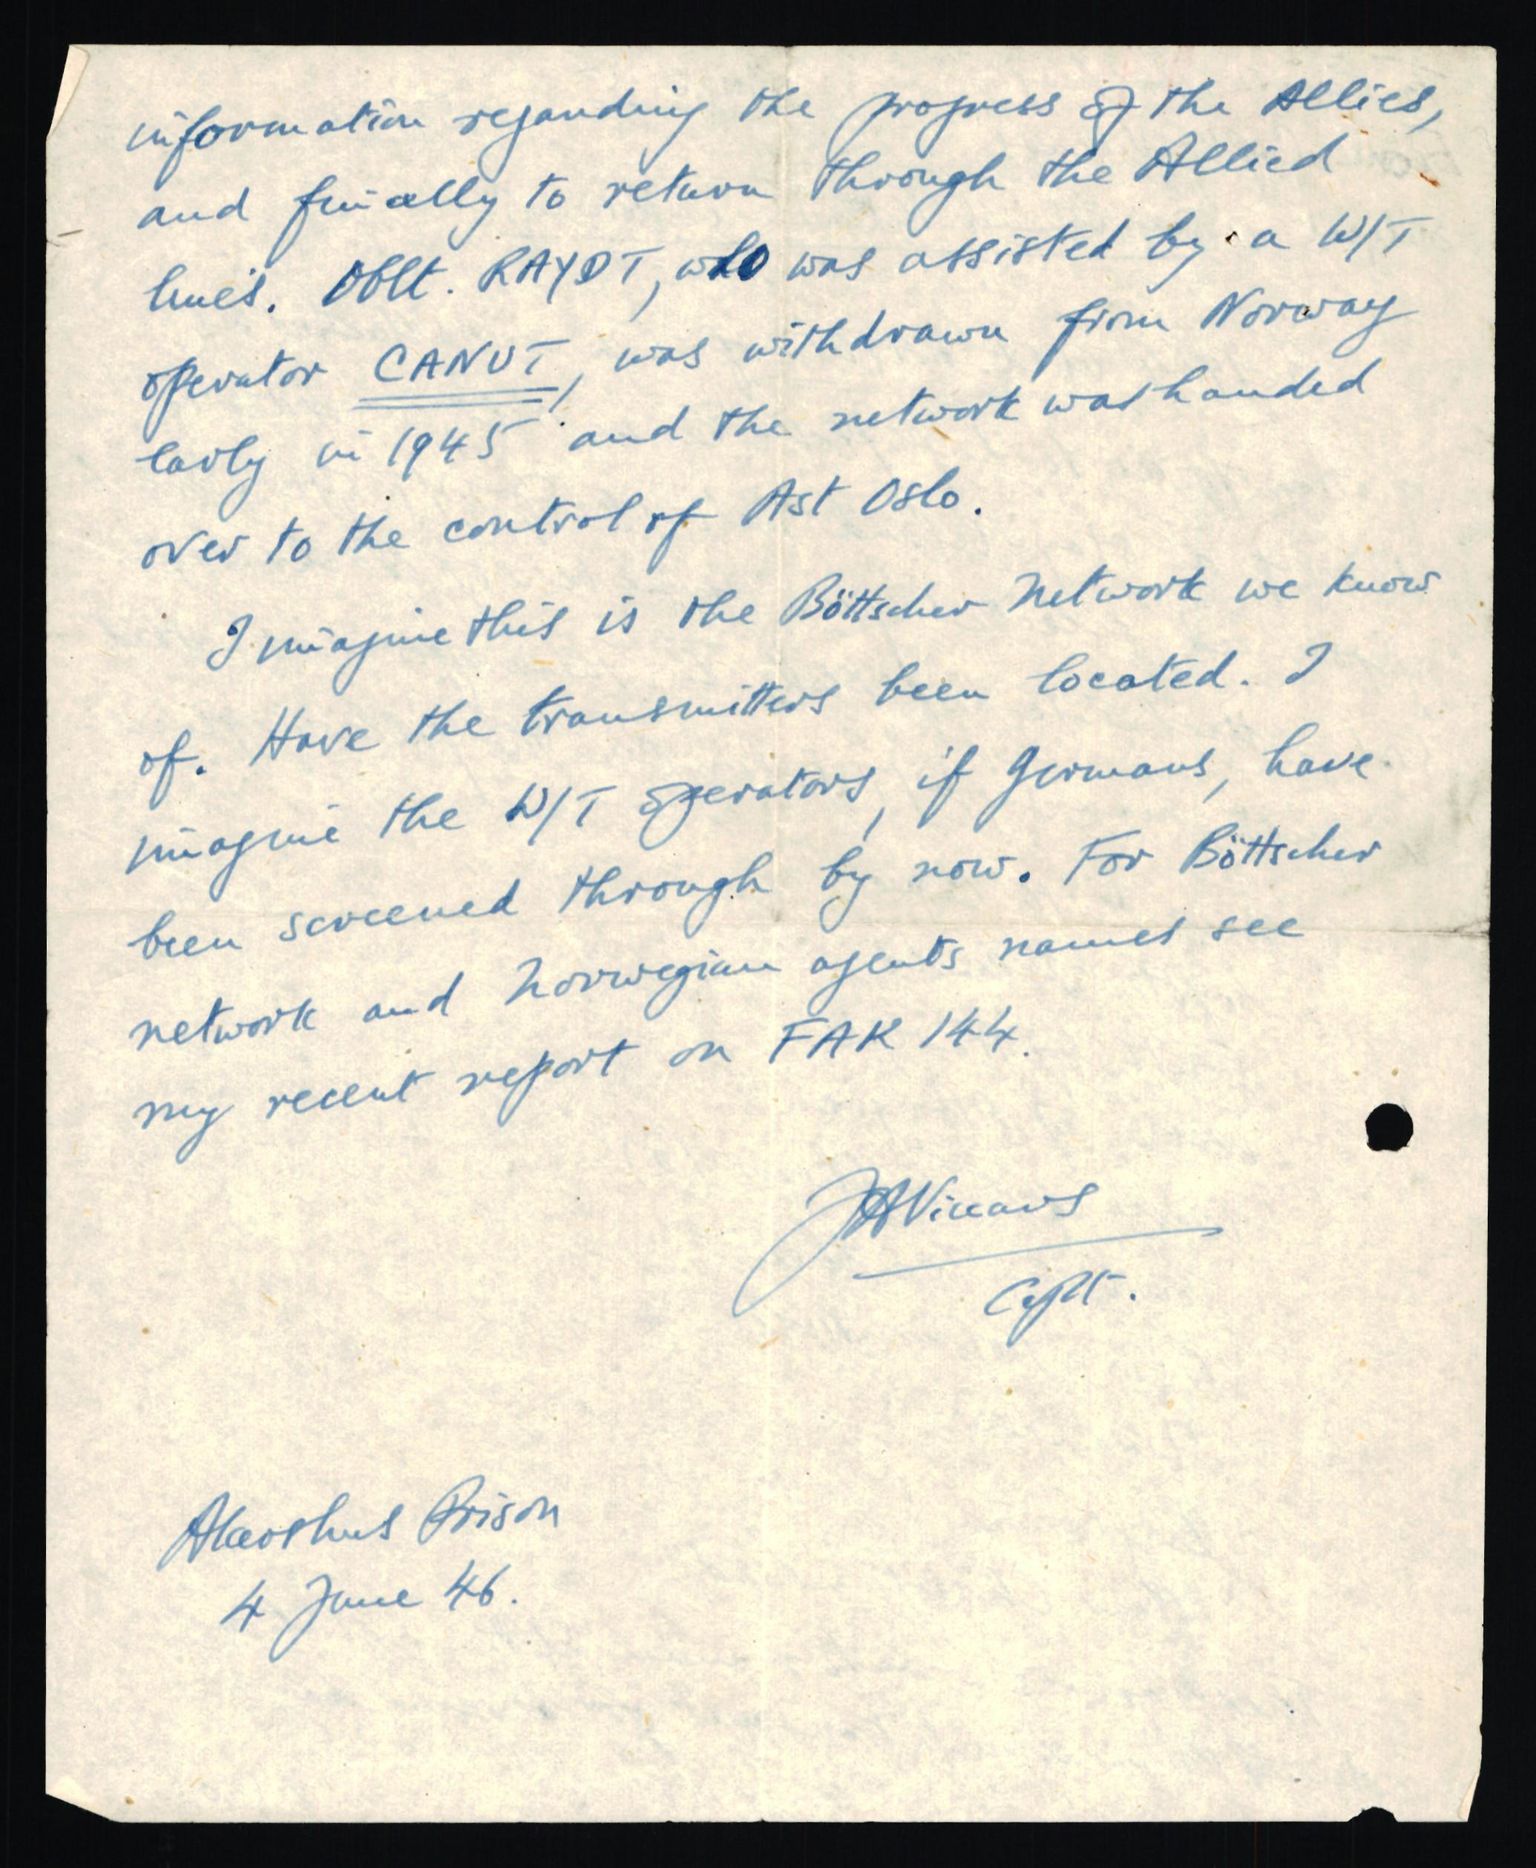 information regarding the progress of the Allies,
and finally to return through the Allied
lines. Oblt. RAYDT, who was assisted by a W/T
operator CANUT, was withdrawn from Norway
early in 1945 and the network was handed
over to the control of Ast Oslo.
I imagine this is the Böttscher Network we know
of. Have the transmitters been located. I
imagine the W/T operators, if Germans, have
been screened through by now. For Böttscher
network and Norwegian agents names see
my recent report on FAK 144.
Capt.
Akershus Prison
4 June 46.